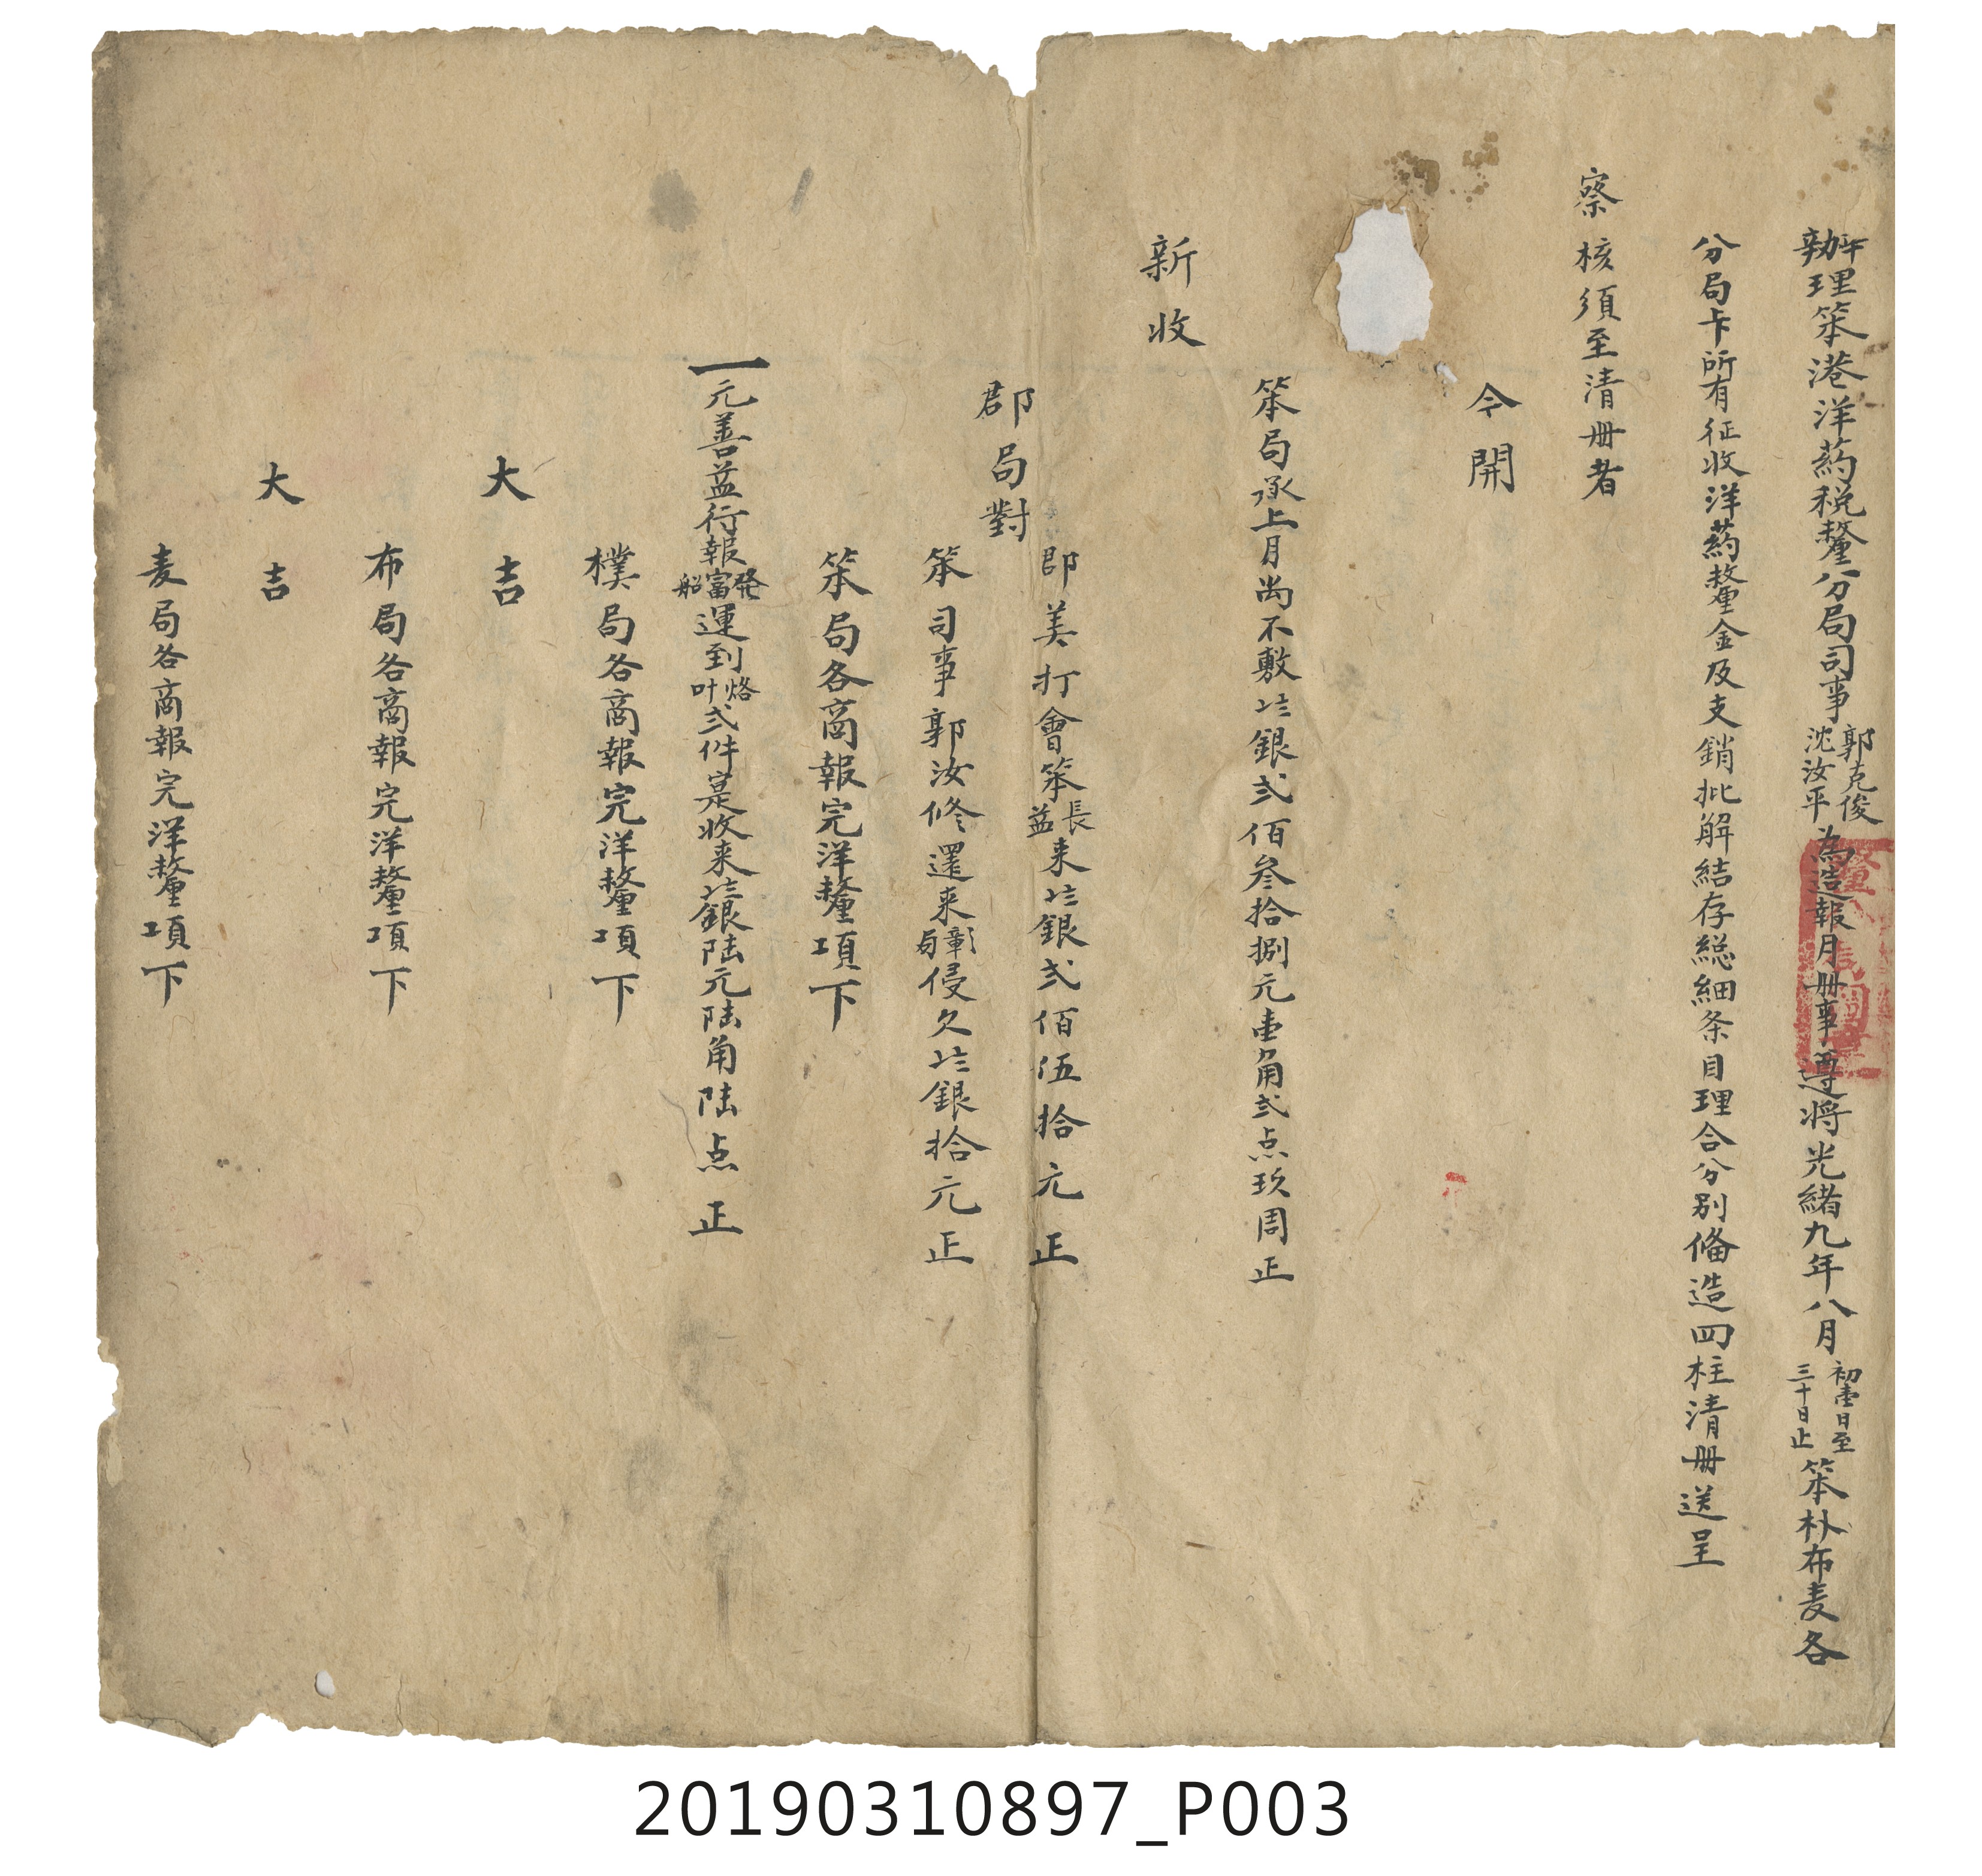 辦理笨港洋葯税釐分局司事郭克俊沈汝平為造報月册事遵将光緒九年八月初壹日至三十日止笨朴布麦各
分局卡所有征收洋葯釐金及支銷批解結存総細条目理合分别俻造四柱清册送呈
察核須至清册者
今開
笨局承上月尚不敷銀弍佰叁拾捌元壹角弍点玖周正
新收
郡局對
郡美打會笨長益来銀弍佰伍拾元正
笨司事郭汝修還来彰局侵欠銀拾元正
笨局各商報完洋釐項下
一元善益行報發富船運到烙叶弍件寔收来銀陆元陆角陆点正
樸局各商報完洋釐項下
大吉
布局各商報完洋釐項下
大吉
麦局各商報完洋釐項下
20190310897_P003